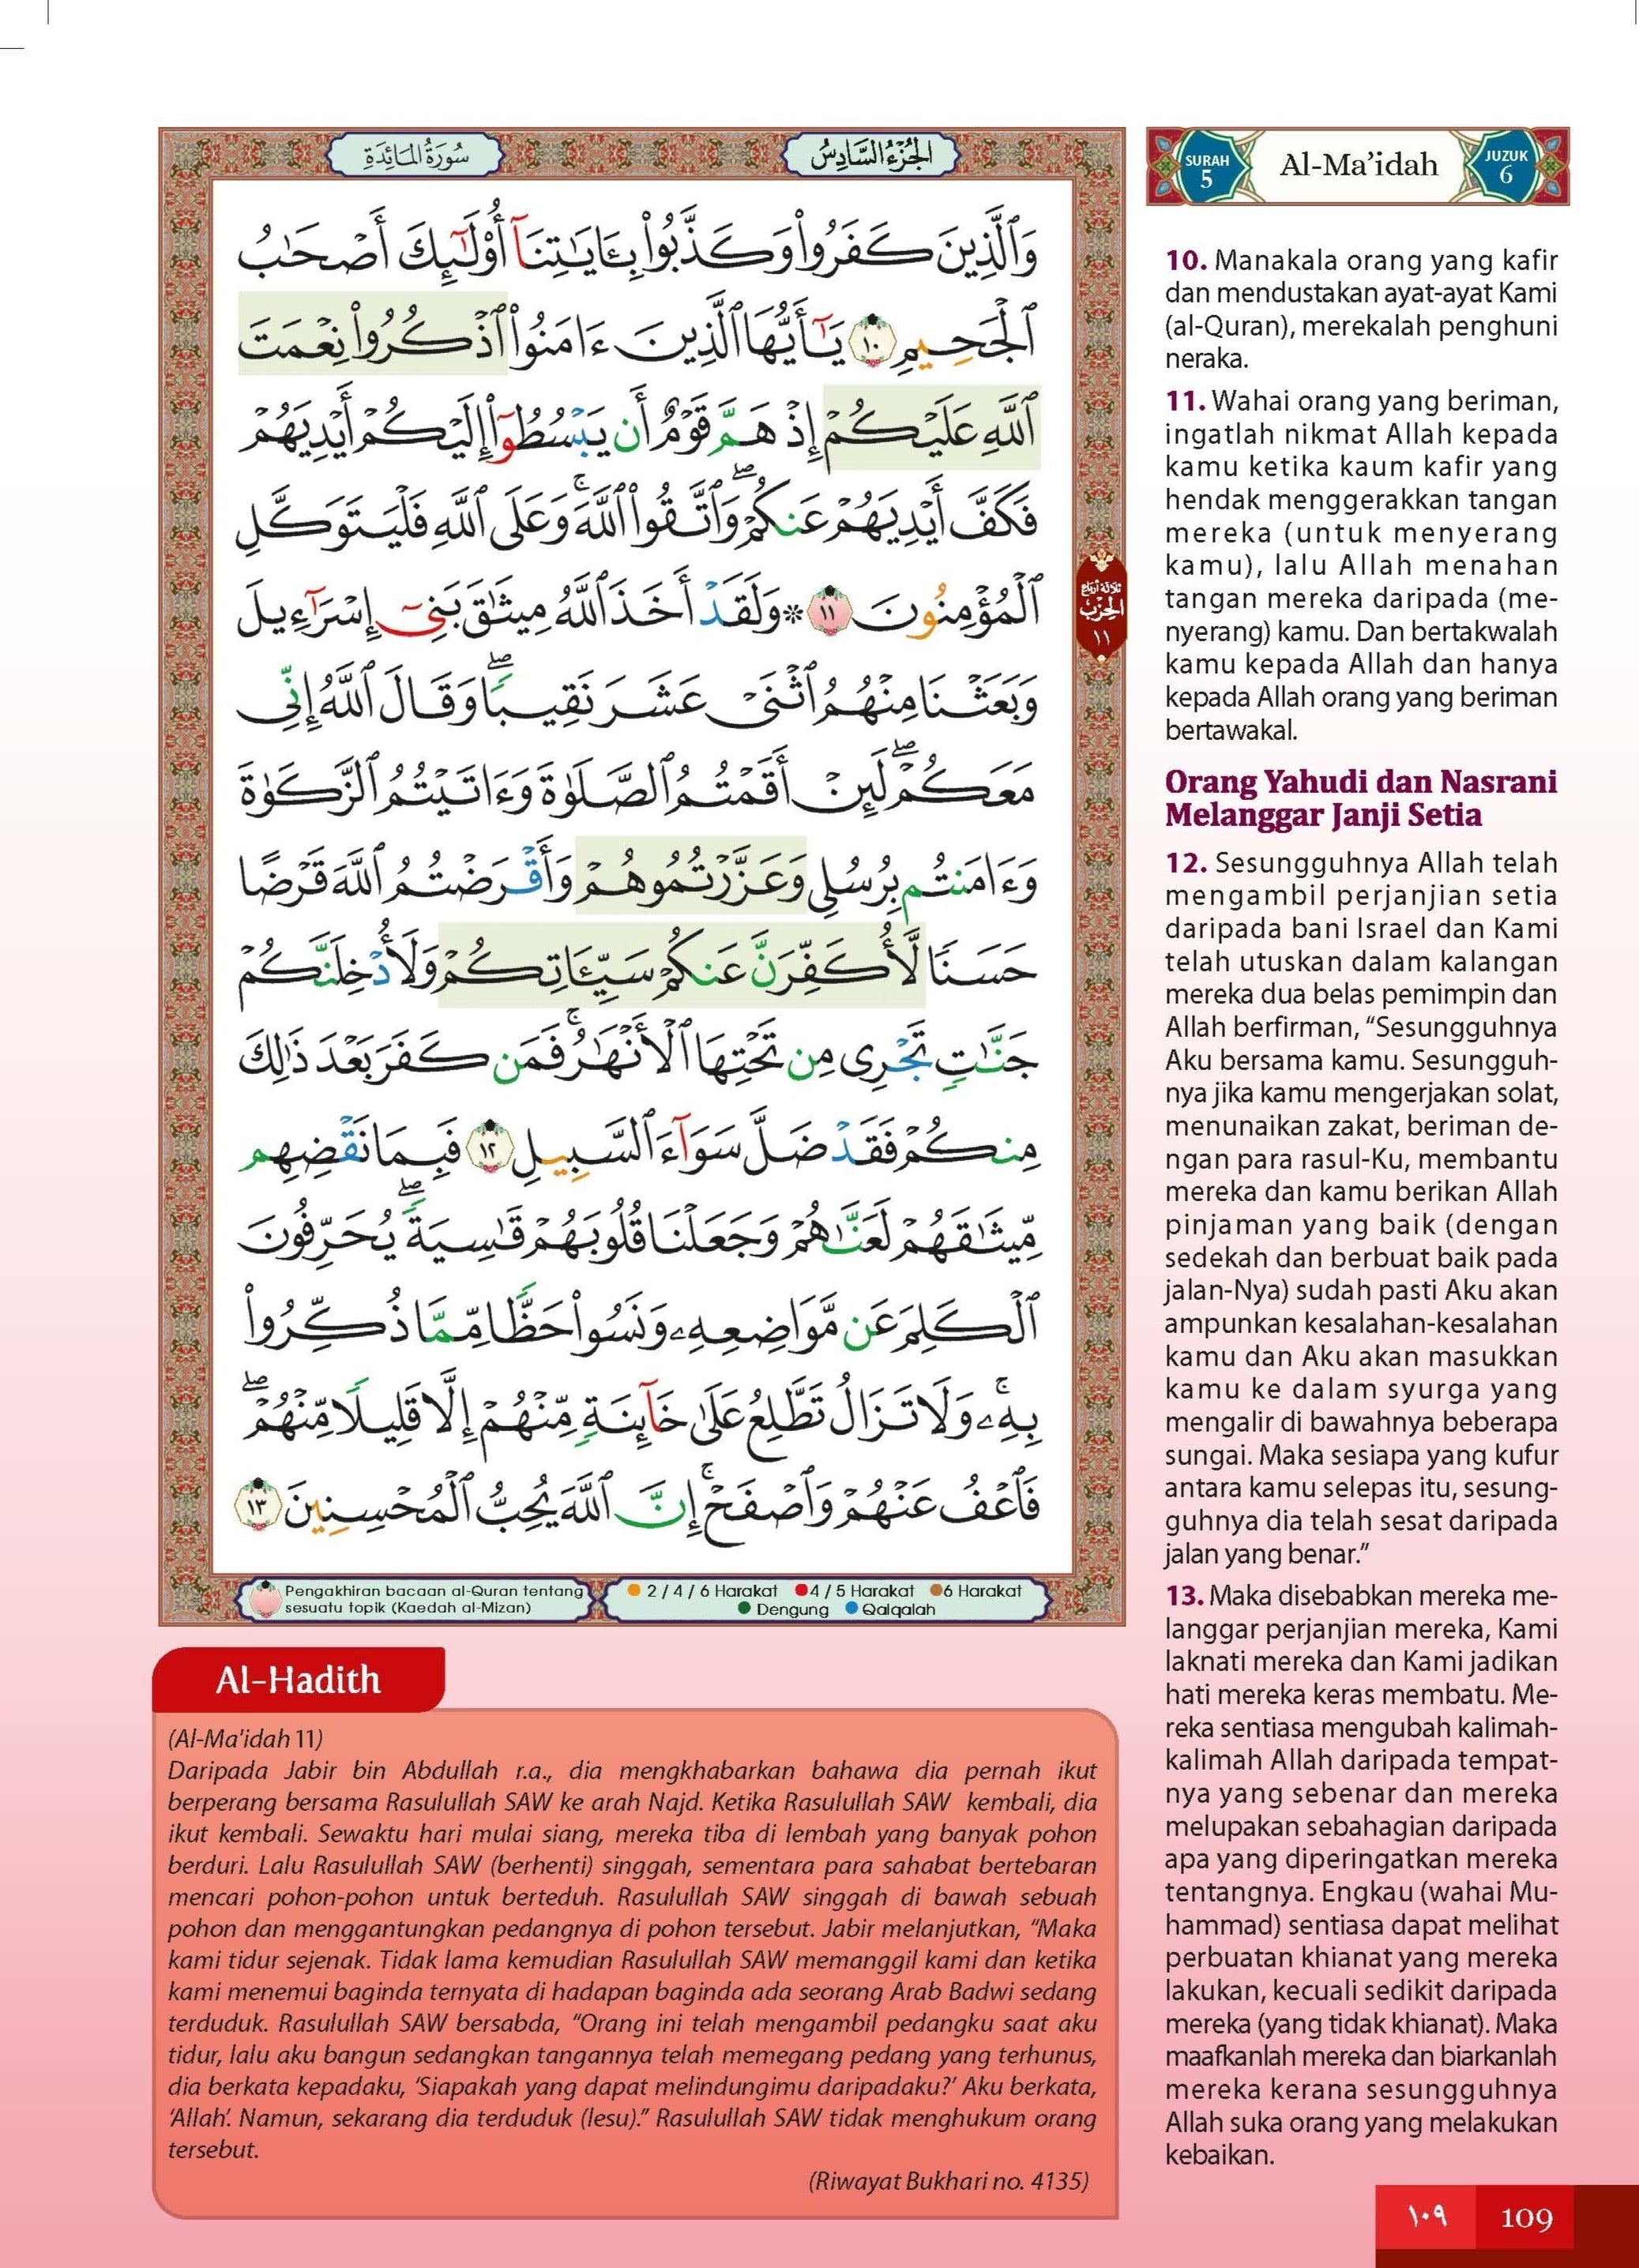 سُورَةُ المَائِدَةِ
الجُزْءُ السَّادِسُ
وَٱلَّذِينَ كَفَرُوا۟ وَكَذَّبُوا۟ بِـَٔايَـٰتِنَآ أُو۟لَـٰٓئِكَ أَصْحَـٰبُ
ٱلْجَحِيمِ ١٠ يَـٰٓأَيُّهَا ٱلَّذِينَ ءَامَنُوا۟ ٱذْكُرُوا۟ نِعْمَتَ
ٱللَّهِ عَلَيْكُمْ إِذْ هَمَّ قَوْمٌ أَن يَبْسُطُوٓا۟ إِلَيْكُمْ أَيْدِيَهُمْ
فَكَفَّ أَيْدِيَهُمْ عَنكُمْ ۖ وَٱتَّقُوا۟ ٱللَّهَ ۚ وَعَلَى ٱللَّهِ فَلْيَتَوَكَّلِ
ٱلْمُؤْمِنُونَ ١١ * وَلَقَدْ أَخَذَ ٱللَّهُ مِيثَـٰقَ بَنِىٓ إِسْرَٰٓءِيلَ
وَبَعَثْنَا مِنْهُمُ ٱثْنَىْ عَشَرَ نَقِيبًا ۖ وَقَالَ ٱللَّهُ إِنِّى
مَعَكُمْ ۖ لَئِنْ أَقَمْتُمُ ٱلصَّلَوٰةَ وَءَاتَيْتُمُ ٱلزَّكَوٰةَ
وَءَامَنتُم بِرُسُلِى وَعَزَّرْتُمُوهُمْ وَأَقْرَضْتُمُ ٱللَّهَ قَرْضًا
حَسَنًا لَّأُكَفِّرَنَّ عَنكُمْ سَيِّـَٔاتِكُمْ وَلَأُدْخِلَنَّكُمْ
جَنَّـٰتٍ تَجْرِى مِن تَحْتِهَا ٱلْأَنْهَـٰرُ ۚ فَمَن كَفَرَ بَعْدَ ذَٰلِكَ
مِنكُمْ فَقَدْ ضَلَّ سَوَآءَ ٱلسَّبِيلِ ١٢ فَبِمَا نَقْضِهِم
مِّيثَـٰقَهُمْ لَعَنَّـٰهُمْ وَجَعَلْنَا قُلُوبَهُمْ قَـٰسِيَةً ۖ يُحَرِّفُونَ
ٱلْكَلِمَ عَن مَّوَاضِعِهِۦ وَنَسُوا۟ حَظًّا مِّمَّا ذُكِّرُوا۟
بِهِۦ ۚ وَلَا تَزَالُ تَطَّلِعُ عَلَىٰ خَآئِنَةٍ مِّنْهُمْ إِلَّا قَلِيلًا مِّنْهُمْ ۖ
فَٱعْفُ عَنْهُمْ وَٱصْفَحْ ۚ إِنَّ ٱللَّهَ يُحِبُّ ٱلْمُحْسِنِينَ ١٣
ثلاثة أرباع
الحزب
١١
Pengakhiran bacaan al-Quran tentang
sesuatu topik (Kaedah al-Mizan)
2 / 4 / 6 Harakat 4 / 5 Harakat 6 Harakat
Dengung Qalqalah
SURAH
5
Al-Ma’idah
JUZUK
6
10. Manakala orang yang kafir
dan mendustakan ayat-ayat Kami
(al-Quran), merekalah penghuni
neraka.
11. Wahai orang yang beriman,
ingatlah nikmat Allah kepada
kamu ketika kaum kafir yang
hendak menggerakkan tangan
mereka (untuk menyerang
kamu), lalu Allah menahan
tangan mereka daripada (me-
nyerang) kamu. Dan bertakwalah
kamu kepada Allah dan hanya
kepada Allah orang yang beriman
bertawakal.
Orang Yahudi dan Nasrani
Melanggar Janji Setia
12. Sesungguhnya Allah telah
mengambil perjanjian setia
daripada bani Israel dan Kami
telah utuskan dalam kalangan
mereka dua belas pemimpin dan
Allah berfirman, “Sesungguhnya
Aku bersama kamu. Sesungguh-
nya jika kamu mengerjakan solat,
menunaikan zakat, beriman de-
ngan para rasul-Ku, membantu
mereka dan kamu berikan Allah
pinjaman yang baik (dengan
sedekah dan berbuat baik pada
jalan-Nya) sudah pasti Aku akan
ampunkan kesalahan-kesalahan
kamu dan Aku akan masukkan
kamu ke dalam syurga yang
mengalir di bawahnya beberapa
sungai. Maka sesiapa yang kufur
antara kamu selepas itu, sesung-
guhnya dia telah sesat daripada
jalan yang benar.”
13. Maka disebabkan mereka me-
langgar perjanjian mereka, Kami
laknati mereka dan Kami jadikan
hati mereka keras membatu. Me-
reka sentiasa mengubah kalimah-
kalimah Allah daripada tempat-
nya yang sebenar dan mereka
melupakan sebahagian daripada
apa yang diperingatkan mereka
tentangnya. Engkau (wahai Mu-
hammad) sentiasa dapat melihat
perbuatan khianat yang mereka
lakukan, kecuali sedikit daripada
mereka (yang tidak khianat). Maka
maafkanlah mereka dan biarkanlah
mereka kerana sesungguhnya
Allah suka orang yang melakukan
kebaikan.
Al-Hadith
(Al-Ma'idah 11)
Daripada Jabir bin Abdullah r.a., dia mengkhabarkan bahawa dia pernah ikut
berperang bersama Rasulullah SAW ke arah Najd. Ketika Rasulullah SAW kembali, dia
ikut kembali. Sewaktu hari mulai siang, mereka tiba di lembah yang banyak pohon
berduri. Lalu Rasulullah SAW (berhenti) singgah, sementara para sahabat bertebaran
mencari pohon-pohon untuk berteduh. Rasulullah SAW singgah di bawah sebuah
pohon dan menggantungkan pedangnya di pohon tersebut. Jabir melanjutkan, “Maka
kami tidur sejenak. Tidak lama kemudian Rasulullah SAW memanggil kami dan ketika
kami menemui baginda ternyata di hadapan baginda ada seorang Arab Badwi sedang
terduduk. Rasulullah SAW bersabda, “Orang ini telah mengambil pedangku saat aku
tidur, lalu aku bangun sedangkan tangannya telah memegang pedang yang terhunus,
dia berkata kepadaku, ‘Siapakah yang dapat melindungimu daripadaku?’ Aku berkata,
‘Allah’. Namun, sekarang dia terduduk (lesu).” Rasulullah SAW tidak menghukum orang
tersebut.
(Riwayat Bukhari no. 4135)
١٠٩ 109